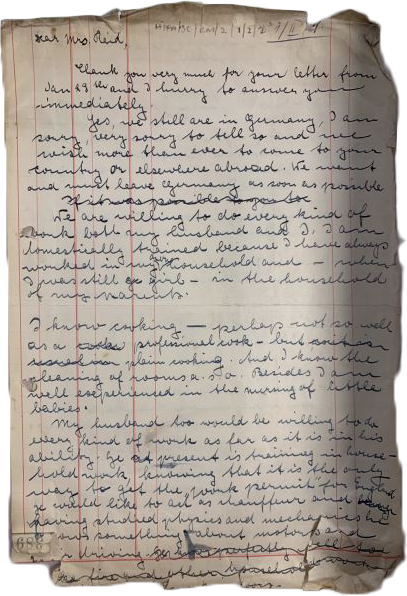 Dear Mrs. Reid,
Thank you very much for your letter from
Jan 29th and I hurry to answer you
immediately.
Yes, we still are in Germany, I am
sorry, very sorry to tell so and we
wish more than ever to come to your
country or elsewhere abroad. We want
and must leave Germany as soon as possible
If it was possible to you to
We are willing to do every kind of
work both my husband and I. I am
domestically trained because I have always
worked in my own household and – when
I was still a girl – in the household
of my parents.
I know cooking – perhaps not so well
as a professional cook – but
plain cooking. And I know the
cleaning of rooms a. s. o. Besides I am
well experienced in the nursing of little
babies.
My husband too would be willing to do
every kind of work as far as it is in his
ability. He at present is training in house-
hold work, knowing that it is the only
way to get the "work permit" for England
He would like to act as chauffeur and
having studied physics and mechanics he
knows something about motors and
car driving. He
the fire and other household work